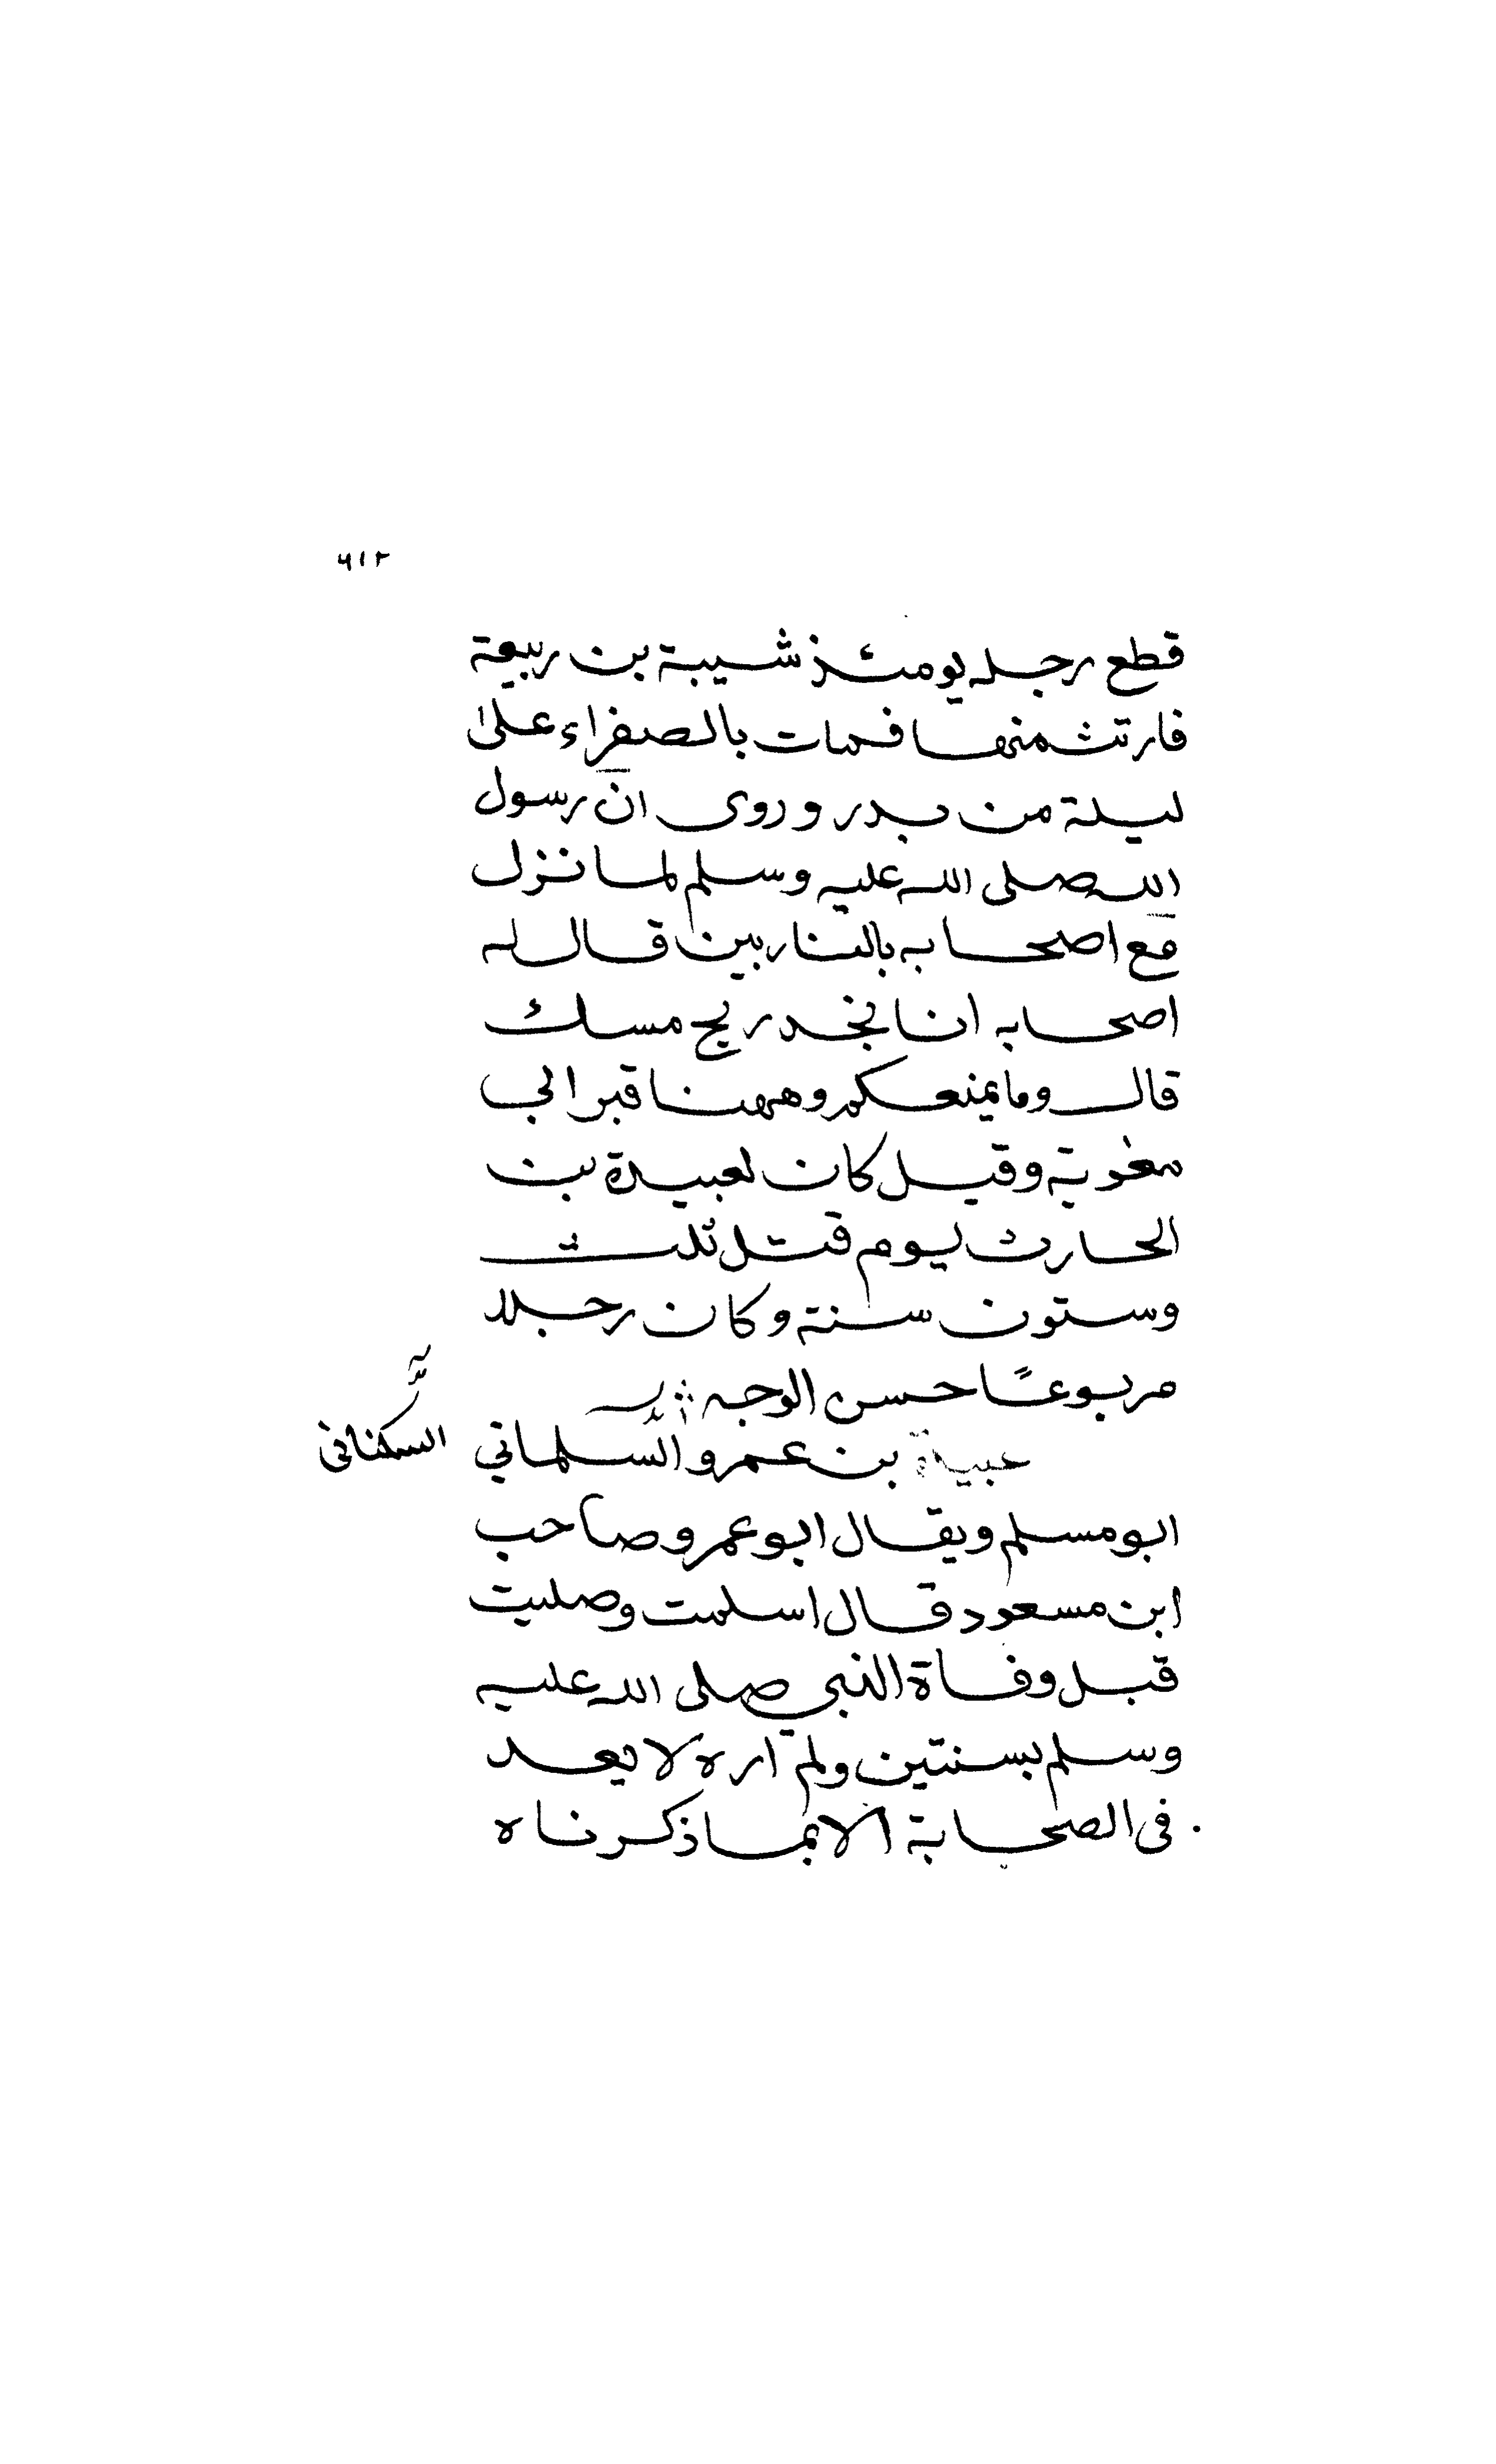 ٦١٢
قطع رجله يومئذ شيبة بن ربيعة
فارتث منها فمات بالصفراء على
ليلة من بدر وروى انّ رسول
الله صلى الله عليه وسلم لما نزل
مع اصحابه بالتاربين قال له
اصحابه انا نجد ريح مسك
قال وما يمنعكم وههنا قبر ابي
معوية وقيل كان لعبيدة بن
الحارث يوم قتل ثلث
وستون سنة وكان رجلا
مربوعًا حسن الوجه
عبيدة بن عمرو السّلماني
السكناني
ابو مسلم ويقال ابو عمرو صاحب
ابن مسعود قال اسلمت وصليت
قبل وفاة النبي صلى الله عليه
وسلم بسنتين ولم اره لا يعد
في الصحابة الا بما ذكرناه